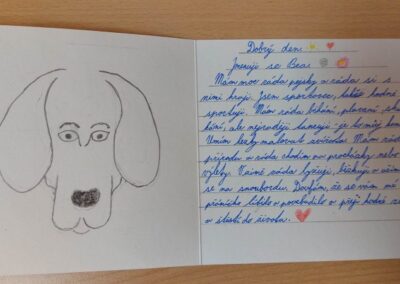 Dobrý den
Jmenuji se Bea
Mám moc ráda pejsky a ráda si s
nimi hraji. Jsem sportovec, takže hodně
sportuji. Mám ráda běhání, plavání, ská
kání, ale nejraději tancuji - je to můj kon
Umím hezky malovat zvířata. Mám ráda
přírodu a ráda chodím na procházky nebo
výlety. V zimě ráda lyžuji, bruslím a učím
se na snowboardu. Doufám, že se vám mé
přáníčko líbilo a povzbudilo a přeji hodně
a štěstí do života.